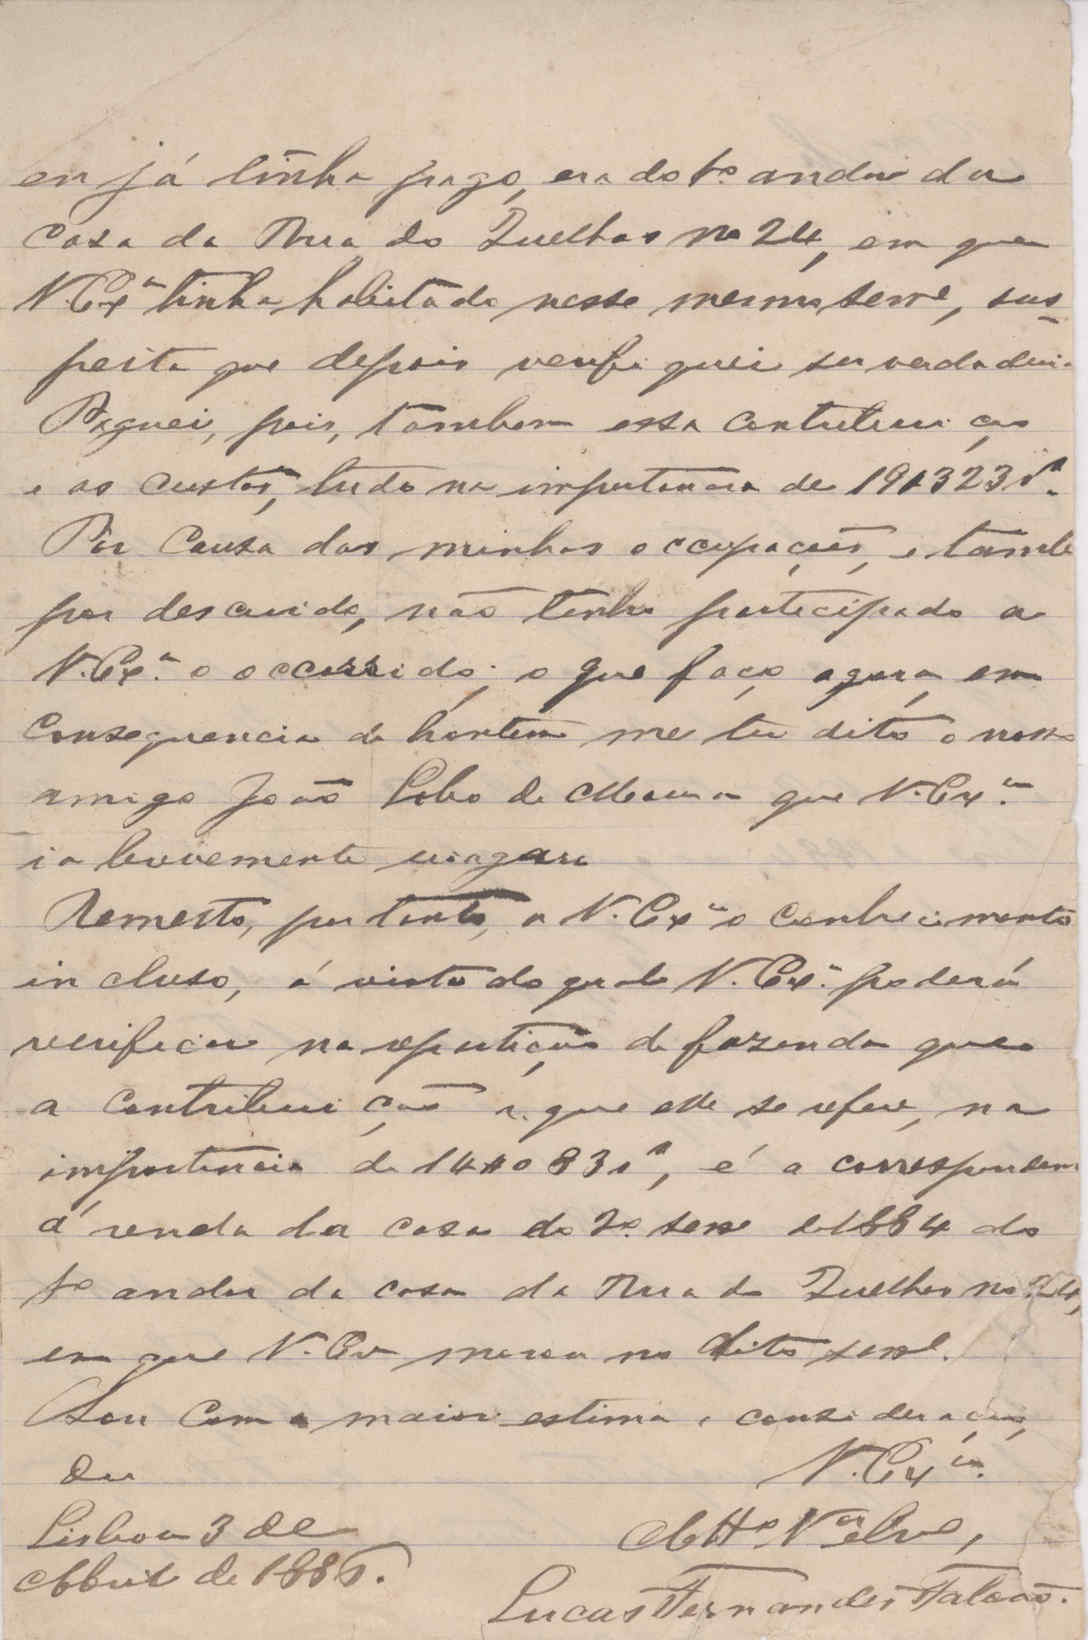 eu já tinha pago, era do 1º andar da
Casa da Rua do Quelhas nº 24, em que
V. Exª tinha habitado nesse mesmo sem^e, sus-
peita que depois verifiquei ser verdadeira
Paguei, pois, tambem essa contribuição
e as custas, tudo na importancia de 19$323 r^s.
Por causa das minhas occupações, e tambe
por descuido, não tenho participado a
V. Exª. o occorrido; o que faço agora, em
consequencia de hontem me ter dito o nosso
amigo João Lobo de Moura que V. Exª.
ia brevemente viajar.
Remetto, portanto, a V. Exª o conhecimento
incluso, á vista do qual V. Exª. poderá
verificar na repartição de fazenda que
a contribuição a que elle se refere, na
importancia de 14$083 r^s, é a correspondem
á renda da casa do 2º. sem^e de 1884 do
1º andar da casa da Rua do Quelhas nº 24,
em que V. Ex morou no dito sem^e.
Sou com a maior estima e consideração,
De
V. Ex^cia.
Lisboa 3 de
Abril de 1886.
Att^o V^or e Cr^e,
Lucas Fernandes Falcão.